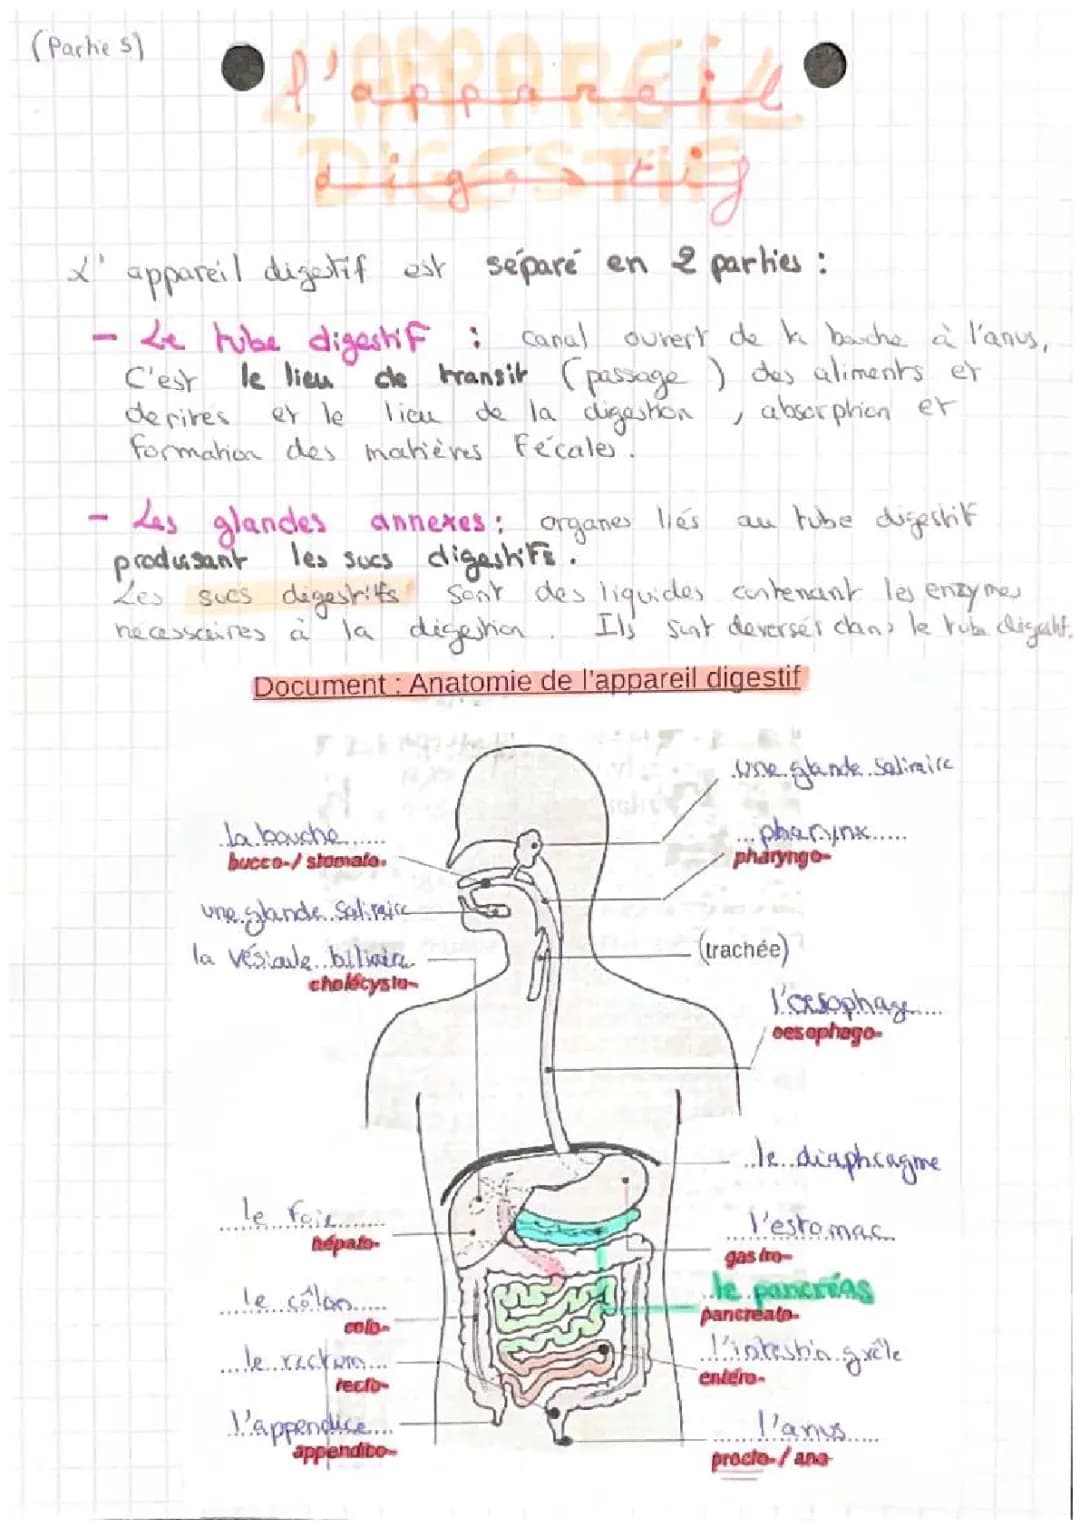 (Partie 5)
L'APPAREIL
l'appareil
DIGESTIF
digestif
L'appareil digestif est séparé en 2 parties :
- Le tube digestif : canal ouvert de la bouche à l'anus,
C'est le lieu de transit (passage) des aliments et
et le lieu de la digestion, absorption et
formation des matières fécales.
- Les glandes annexes : organes liés au tube digestif
produisant les sucs digestifs.
Les sucs digestifs sont des liquides contenant les enzymes
nécessaires à la digestion. Ils sont déversés dans le tube digestif.
Document : Anatomie de l'appareil digestif
une glande salivaire
la bouche
bucco-/ stomato-
pharynx
pharyngo-
une glande salivaire
la vésicule biliaire
cholécysto-
(trachée)
l'oesophage
oesophago-
le diaphragme
le foie
hépato-
l'estomac
gastro-
le pancréas
pancréato-
le côlon
colo-
l'intestin grêle
entéro-
le rectum
recto-
l'appendice
appendico-
l'anus
procto-/ ano-